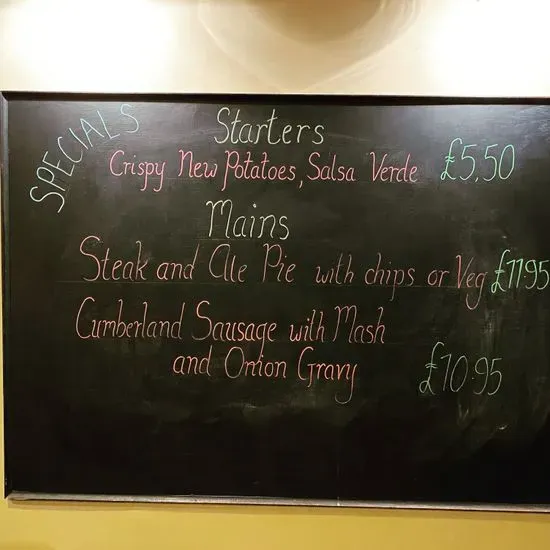 SPECIALS
Starters
Crispy New Potatoes, Salsa Verde £5.50
Mains
Steak and Ale Pie with chips or Veg £11.95
Cumberland Sausage with Mash
and Onion Gravy £10.95